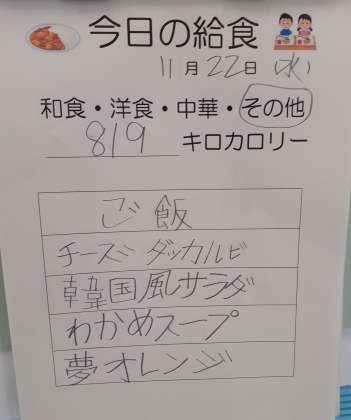 今日の給食
11月22日(水)
和食・洋食・中華・その他
819キロカロリー
ご飯
チーズダッカルビ
韓国風サラダ
わかめスープ
夢オレンジ